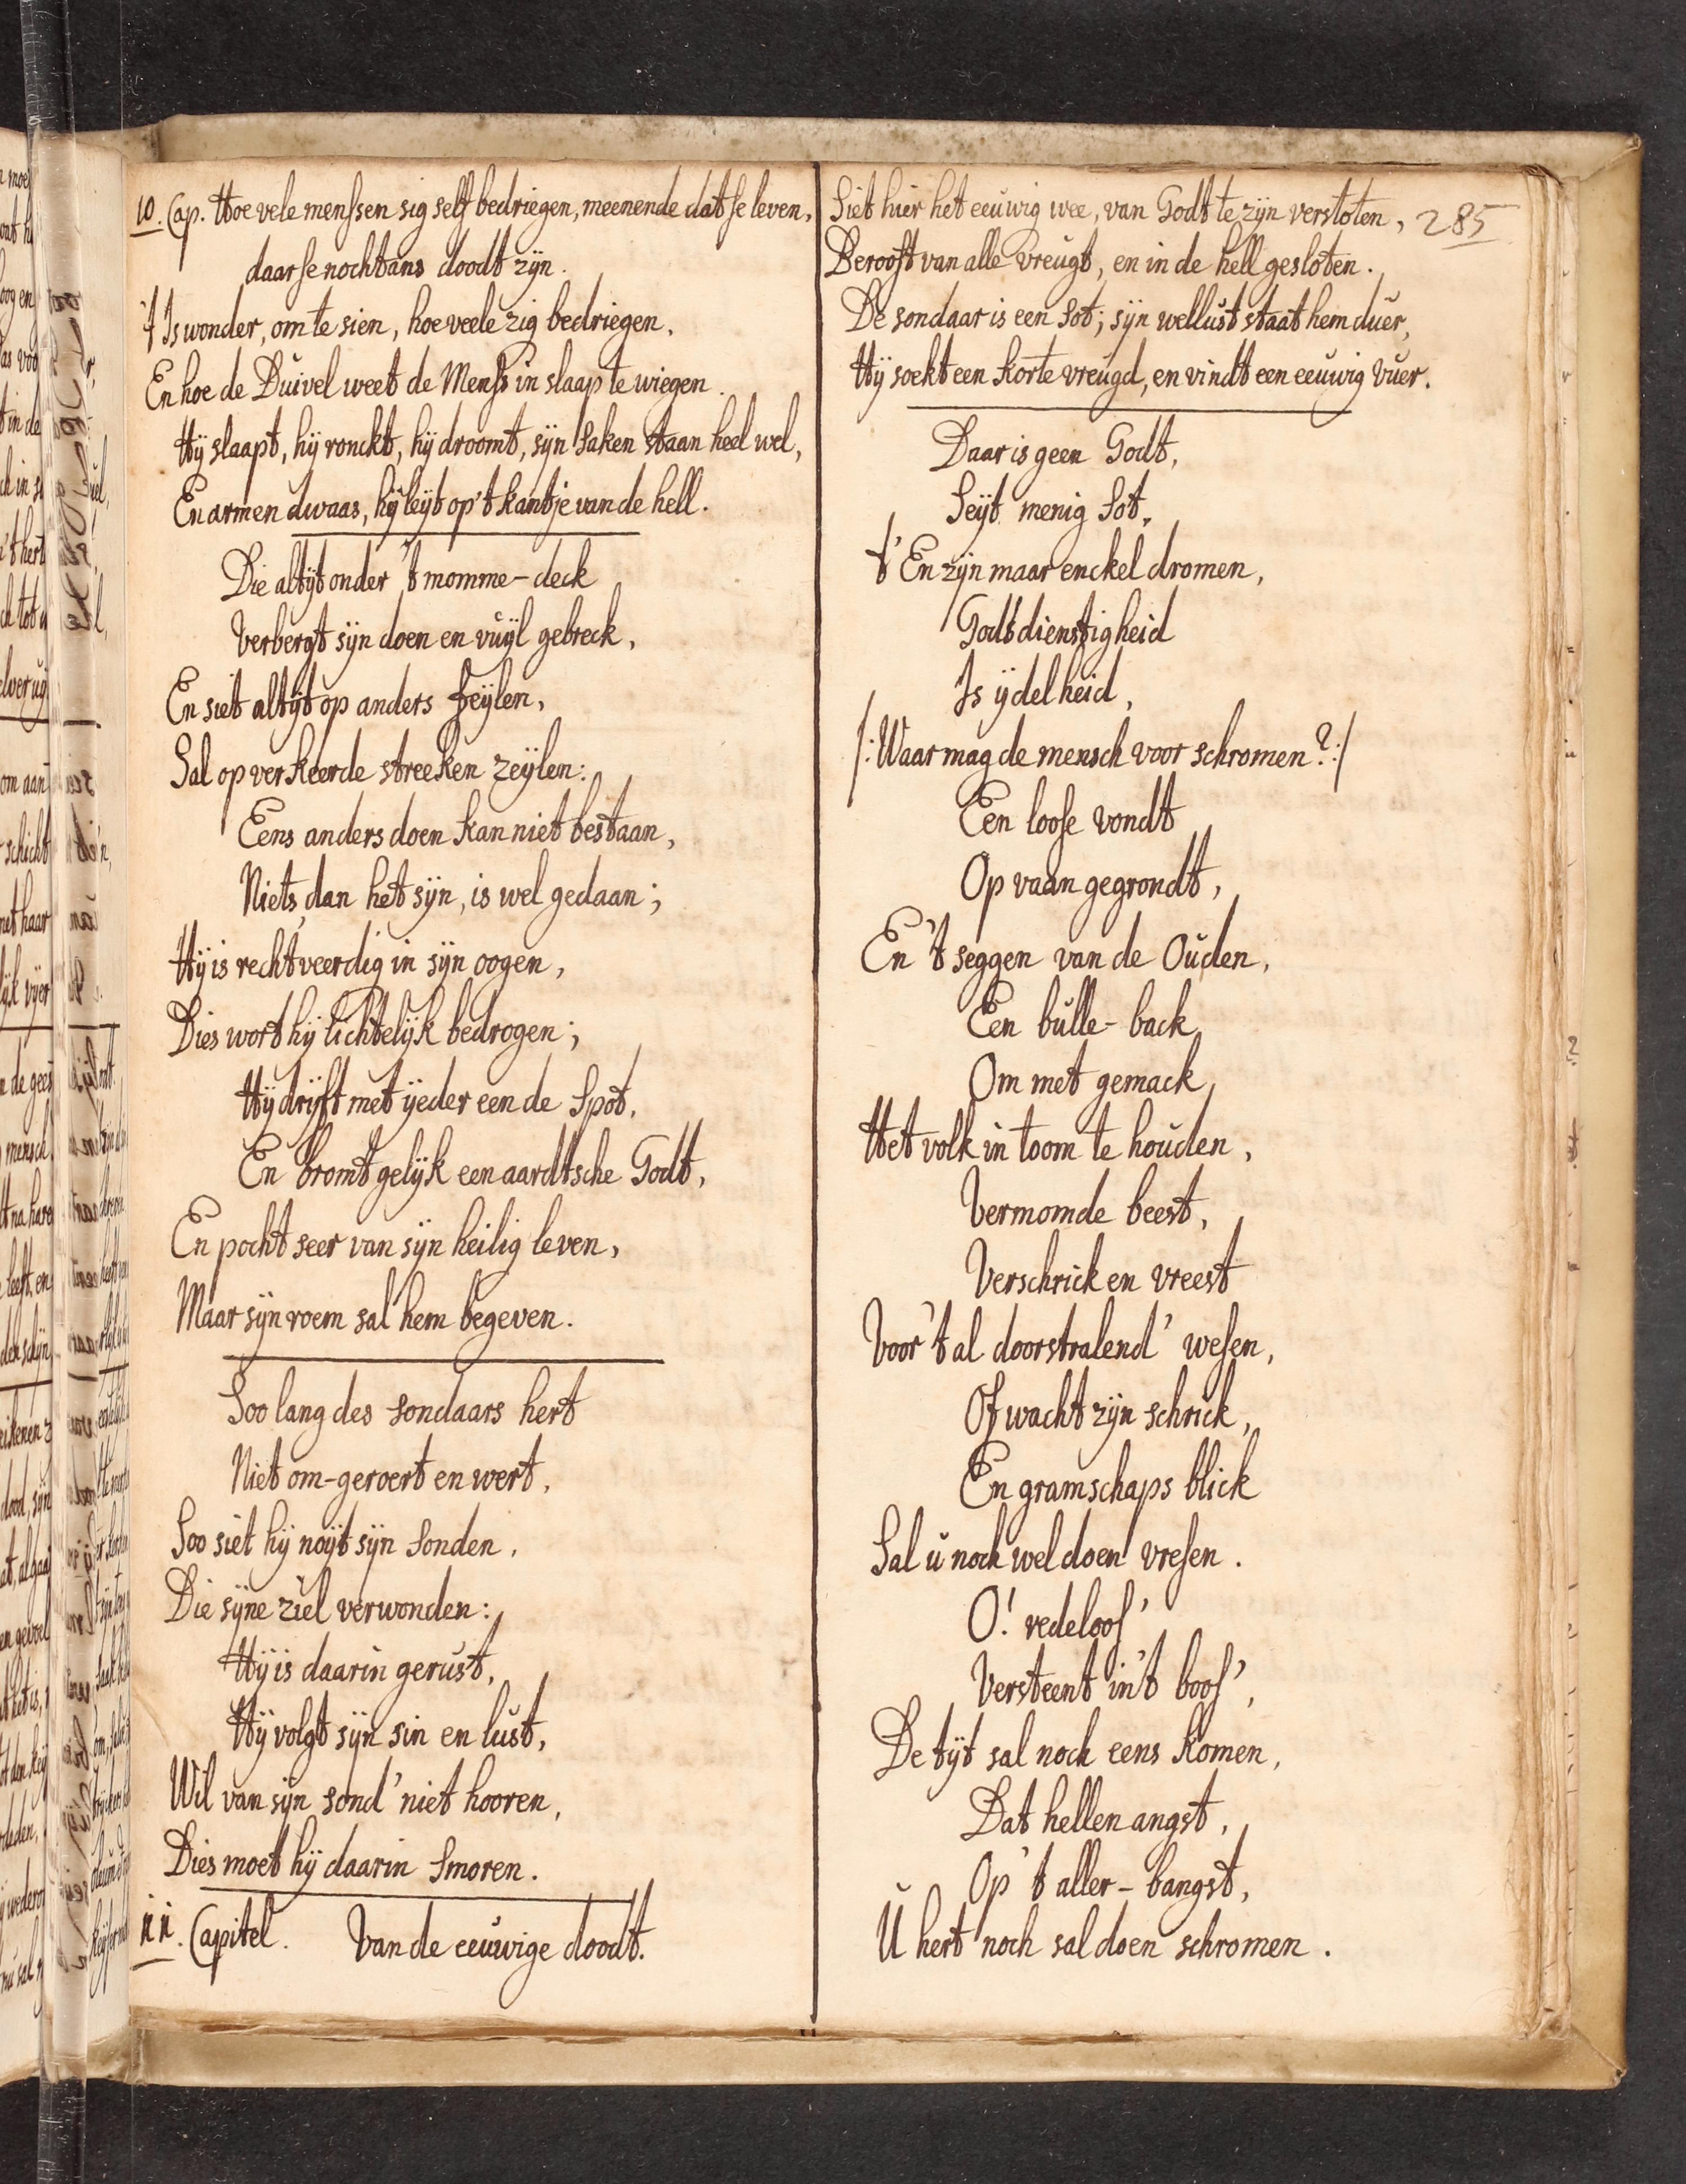 10. Cap. Hoe vele menssen sig self bedriegen, meenende dat se leven,
daar se nochtans doodt zijn.
't Is wonder, om te sien, hoe veele zig bedriegen,
En hoe de Duivel weet de Menss in slaap te wiegen.
Hij slaapt, hij ronckt, hij droomt, sijn saken staan heel wel,
En armen dwaas, hij leijt op 't kantje van de hell.
Die altijt onder 't momme-deck
Verbergt sijn doen en vuijl gebreck,
En siet altijt op anders feijlen,
Sal op verkeerde streeken zeijlen:
Eens anders doen kan niet bestaan,
Niets dan het sijn, is wel gedaan;
Hij is rechtveerdig in sijn oogen,
Dies wort hij lichtelijk bedrogen;
Hij drijft met ijeder een de Spot,
En bromt gelijk een aardtsche Godt,
En pocht seer van sijn heilig leven,
Maar sijn roem sal hem begeven.
Soo lang des sondaars hert
Niet om-geroert en wert,
Soo siet hij noijt sijn sonden,
Die sijne ziel verwonden:
Hij is daarin gerust,
Hij volgt sijn sin en lust,
Wil van sijn sond' niet hooren,
Dies moet hij daarin smoren.
11. Capitel. Van de eeuwige doodt.
Siet hier het eeuwig wee, van Godt te zijn verstoten, 285
Berooft van alle vreugt, en in de hell gesloten.
De sondaar is een sot; sijn wellust staat hem duer,
Hij soekt een korte vreugd, en vindt een eeuwig vuer.
Daar is geen Godt,
Seijt menig Sot,
t' En zijn maar enckel dromen,
Godtsdienstigheid
Is ijdelheid,
/: Waar mag de mensch voor schromen? :/
Een loose vondt
Op vaan gegrondt,
En 't seggen van de Ouden,
Een bulle-back
Om met gemack
Het volk in toom te houden,
Vermomde beest,
Verschrick en vreest
Voor 't al doorstralend' wesen,
Of wacht zijn schrick,
En gramschaps blick
Sal u noch wel doen vresen.
O! redeloos'
Versteent in 't boos',
De tijt sal noch eens komen,
Dat hellen angst,
Op 't aller-bangst,
U hert noch sal doen schromen.